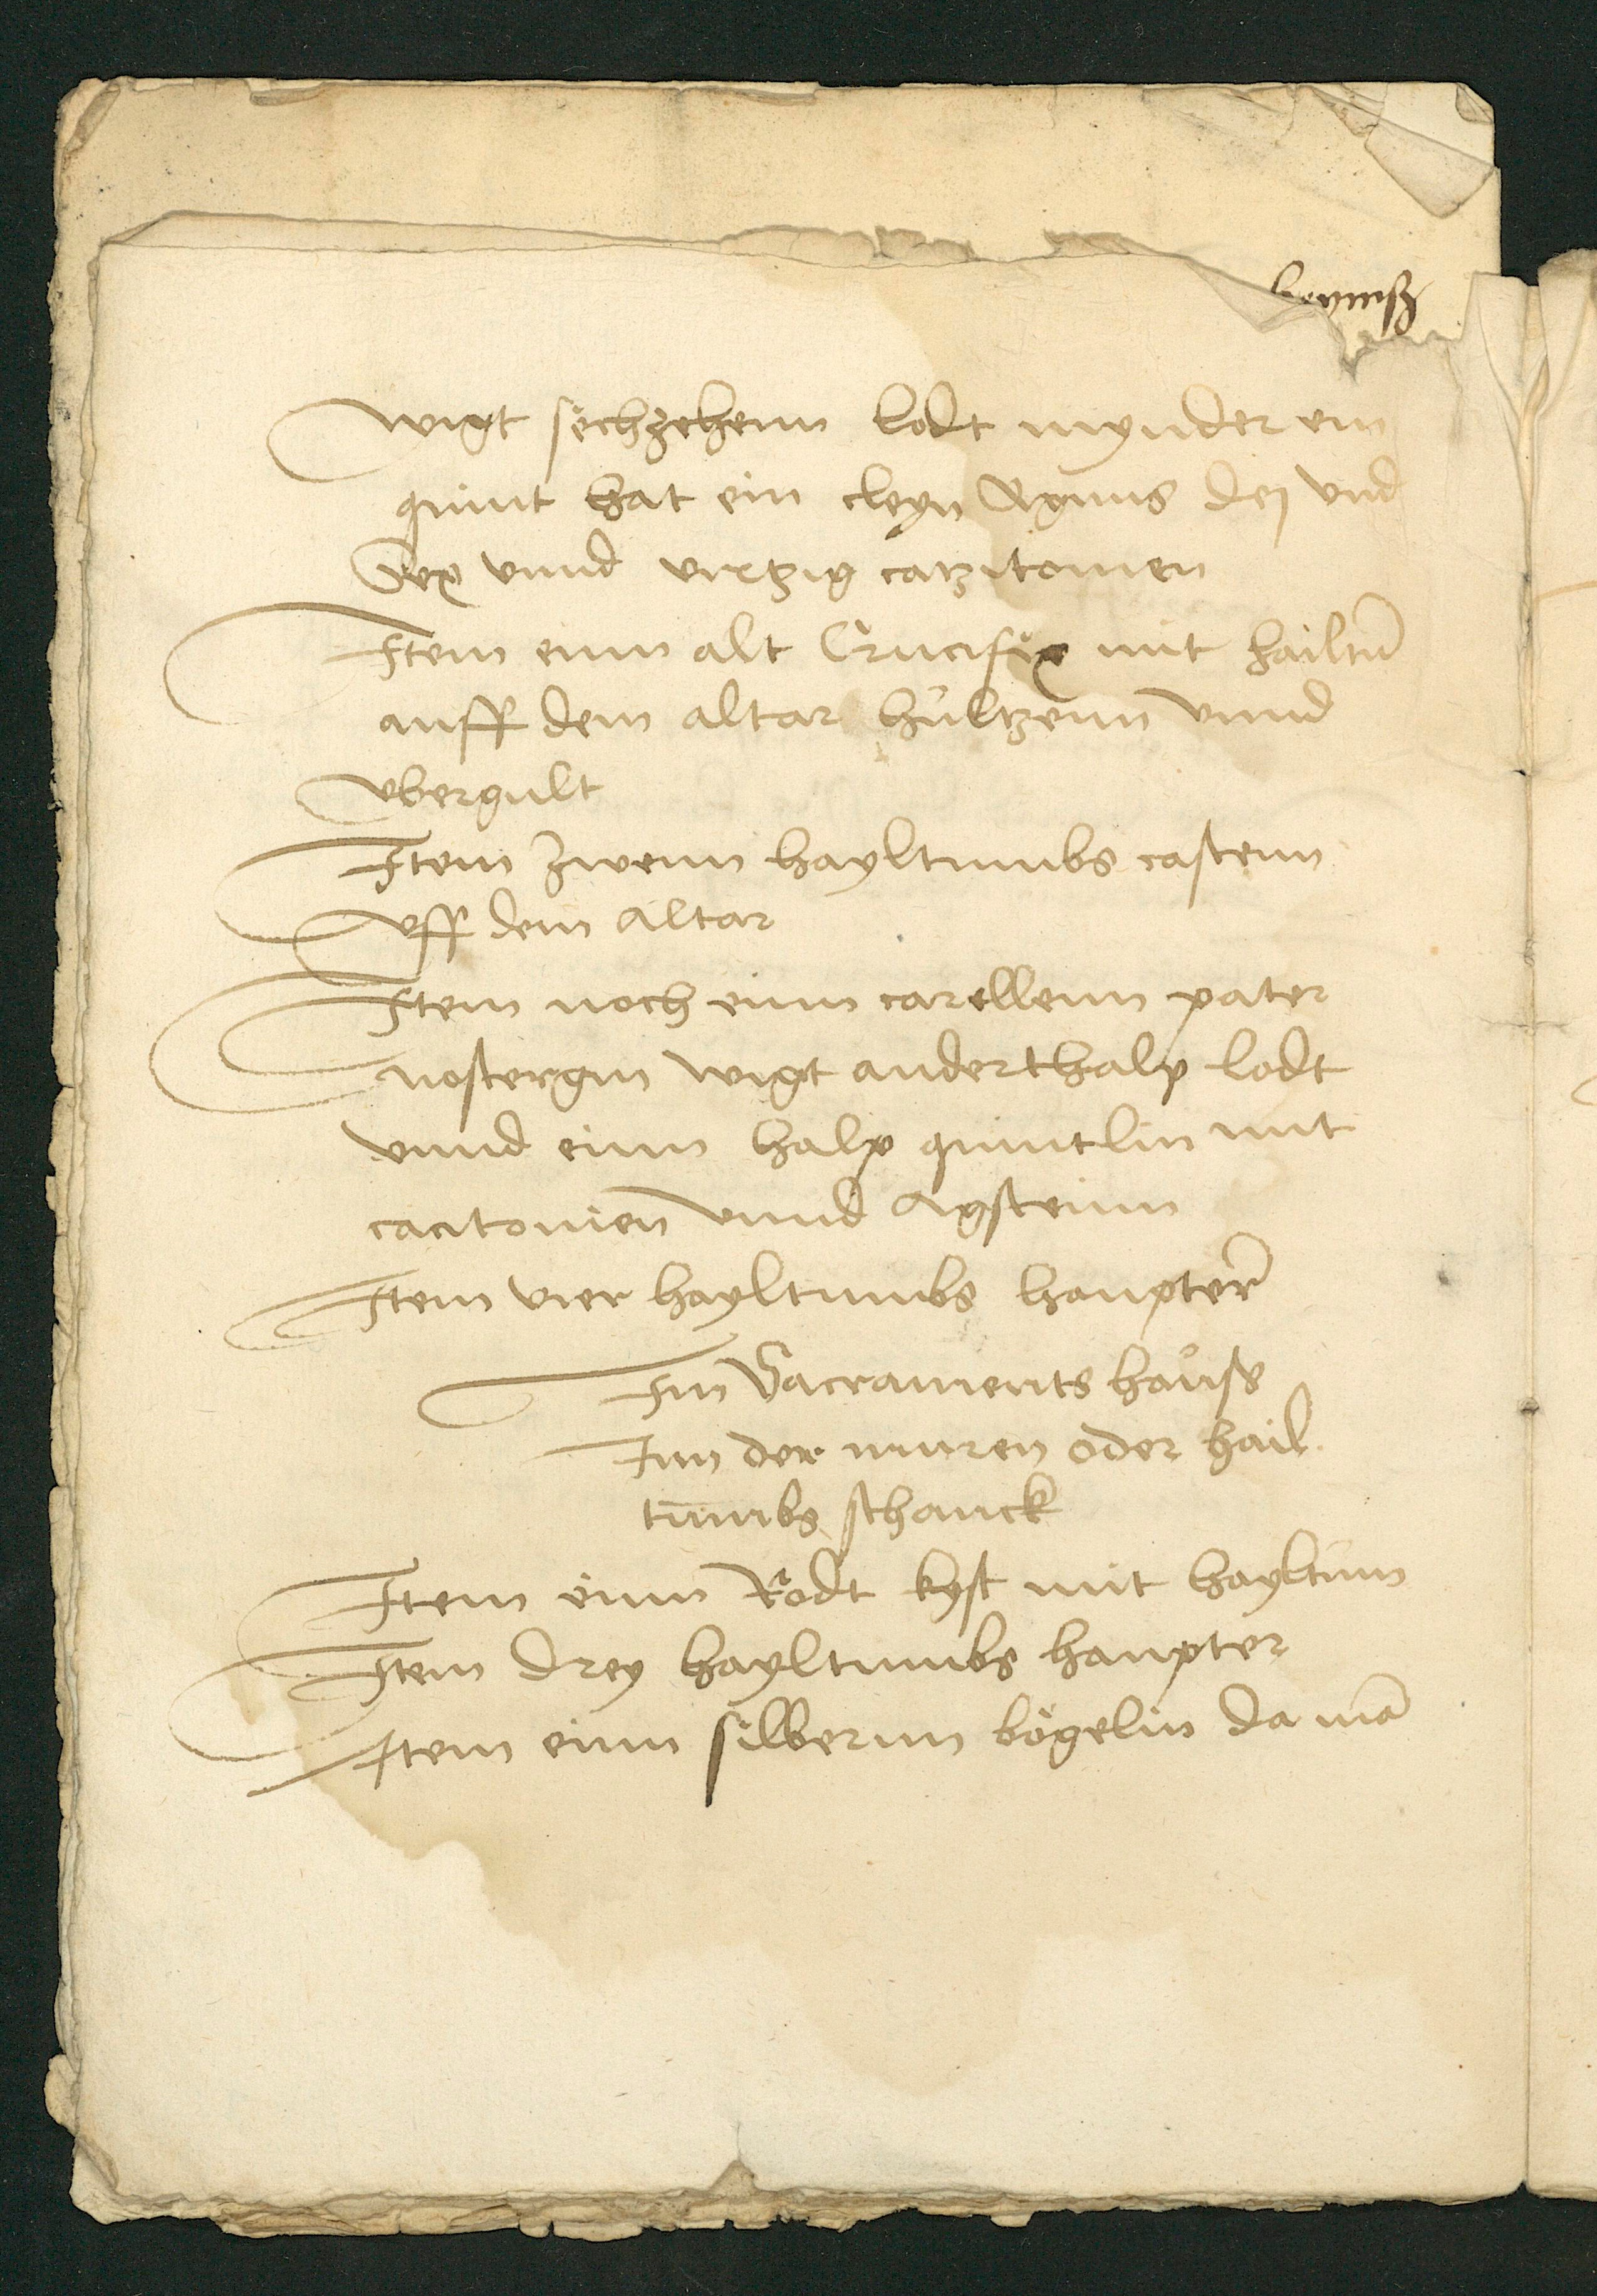 wigt sechzehenn lodt mynder ein
quint hat ein cleyn Agnus dej vnd
sex vnnd virtzig catzitonien
Item einn alt Crucifix mit hailtu̅
auff dem altar hültzenn vnnd
vbergult
Item zwenn hayltumbs castenn
vff dem altar
Item noch einn corellenn pater
nostergin wigt anderthalp lodt
vnnd einn halp quintlin mit
cacitonien vnnd Agsteinn
Item vier hayltumbs haupter
Im Sacraments hauße
Inn der muren oder hail
tumbs schanck
Item einn Rodt kyst mit hayltum
Item drey hayltumbs haupter
Item einn silberinn bögelin da ma̅